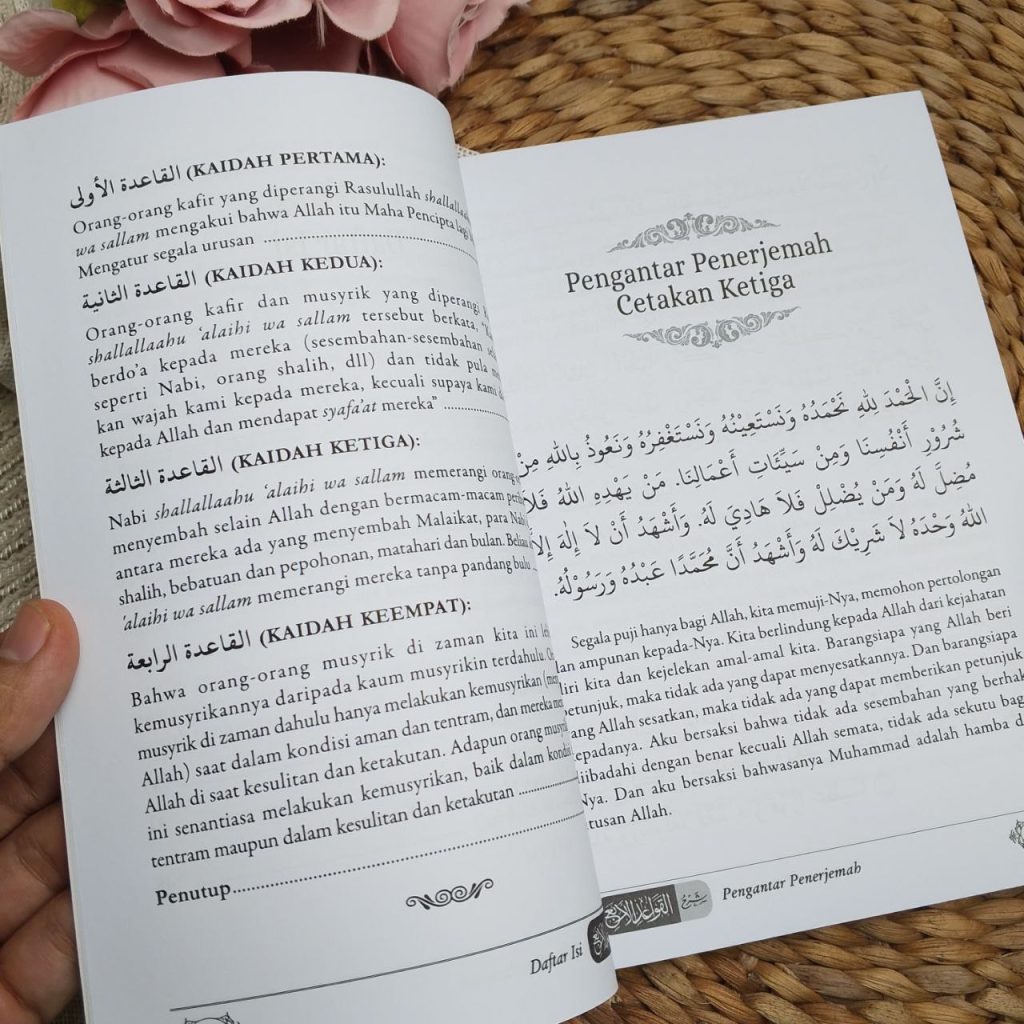 القاعدة الأولى (KAIDAH PERTAMA):
Orang-orang kafir yang diperangi Rasulullah
wa sallam mengakui bahwa Allah itu Maha Pencipta lagi
Mengatur segala urusan ................................................
القاعدة الثانية (KAIDAH KEDUA):
Orang-orang kafir dan musyrik yang diperangi
shallallaahu ‘alaihi wa sallam tersebut berkata,
berdo’a kepada mereka (sesembahan-sesembahan
seperti Nabi, orang shalih, dll) dan tidak pula
kan wajah kami kepada mereka, kecuali supaya kami
kepada Allah dan mendapat syafa’at mereka” ................
القاعدة الثالثة (KAIDAH KETIGA):
Nabi shallallaahu ‘alaihi wa sallam memerangi
menyembah selain Allah dengan bermacam-macam
antara mereka ada yang menyembah Malaikat, para Nabi
shalih, bebatuan dan pepohonan, matahari dan bulan.
‘alaihi wa sallam memerangi mereka tanpa pandang bulu
القاعدة الرابعة (KAIDAH KEEMPAT):
Bahwa orang-orang musyrik di zaman kita ini
kemusyrikannya daripada kaum musyrikin terdahulu.
musyrik di zaman dahulu hanya melakukan kemusyrikan
Allah) saat dalam kondisi aman dan tentram, dan mereka
Allah di saat kesulitan dan ketakutan. Adapun orang
ini senantiasa melakukan kemusyrikan, baik dalam
tentram maupun dalam kesulitan dan ketakutan ..............
Penutup................................................................
Daftar Isi
Pengantar Penerjemah
Cetakan Ketiga
إِنَّ الْحَمْدَ لِلّٰهِ نَحْمَدُهُ وَنَسْتَعِيْنُهُ وَنَسْتَغْفِرُهُ وَنَعُوذُ بِاللهِ مِنْ
شُرُوْرِ أَنْفُسِنَا وَمِنْ سَيِّئَاتِ أَعْمَالِنَا. مَنْ يَهْدِهِ اللهُ فَلَا
مُضِلَّ لَهُ وَمَنْ يُضْلِلْ فَلَا هَادِيَ لَهُ. وَأَشْهَدُ أَنْ لَا إِلٰهَ إِلَّا
اللهُ وَحْدَهُ لَا شَرِيْكَ لَهُ وَأَشْهَدُ أَنَّ مُحَمَّدًا عَبْدُهُ وَرَسُوْلُهُ.
Segala puji hanya bagi Allah, kita memuji-Nya, memohon pertolongan
dan ampunan kepada-Nya. Kita berlindung kepada Allah dari kejahatan
diri kita dan kejelekan amal-amal kita. Barangsiapa yang Allah beri
petunjuk, maka tidak ada yang dapat menyesatkannya. Dan barangsiapa
yang Allah sesatkan, maka tidak ada yang dapat memberikan petunjuk
kepadanya. Aku bersaksi bahwa tidak ada sesembahan yang berhak
diibadahi dengan benar kecuali Allah semata, tidak ada sekutu bagi
Nya. Dan aku bersaksi bahwasanya Muhammad adalah hamba
utusan Allah.
شرح القواعد الأربع
Pengantar Penerjemah